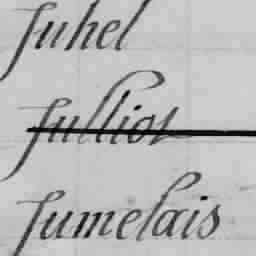 Juhel
Julliot
Jumelais